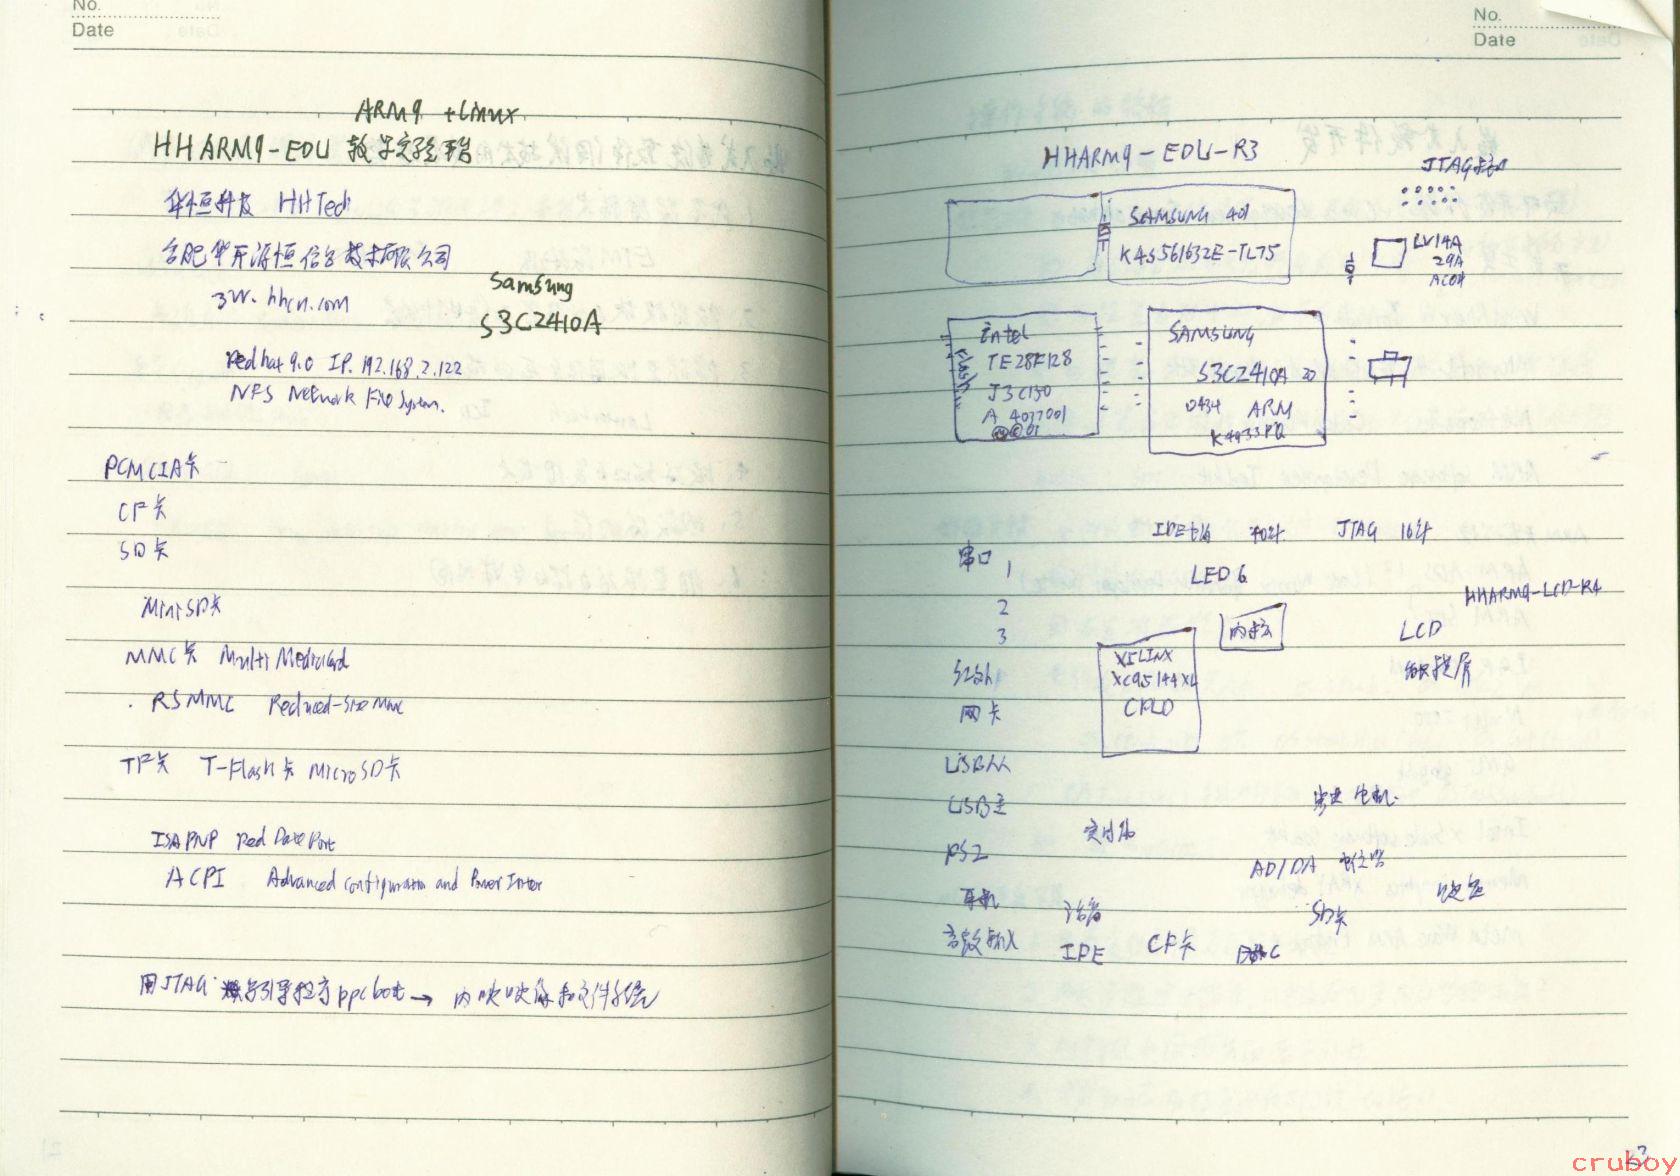 No.
Date
ARM9 +Linux
HHARM9-EDU 教学实验箱
华恒科技 HHTech
合肥华开源恒信息技术有限公司
3W.hhcn.com
Samsung
S3C2410A
Redhat 9.0 IP. 192.168.2.122
NFS Network File System.
PCMCIA卡
CF卡
SD卡
MiniSD卡
MMC卡 MultiMediaCard
RSMMC Reduced-Size MMC
TF卡 T-Flash卡 MicroSD卡
ISAPNP Read Data Port
ACPI Advanced Configuration and Power Inter
用JTAG 引导程序ppcboot→ 内映像和文件系统
No.
Date
HHARM9-EDU-R3
JTAG接口
SAMSUNG 401
K4S561632E-TL75
LV14A
29A
AC04
intel
Flash
TE28F128
J3C150
A 4077001
SAMSUNG
S3C2410A 20
0434 ARM
串口
1
2
3
IDE 40针
JTAG 10针
LED6
HHARM9-LCD-R4
LCD
触摸屏
XILINX
XC95144XL
CPLD
红外
网卡
USB从
USB主
PS2
步进电机
AD/DA 电位器
SD卡
IDE
CF卡
cruboy